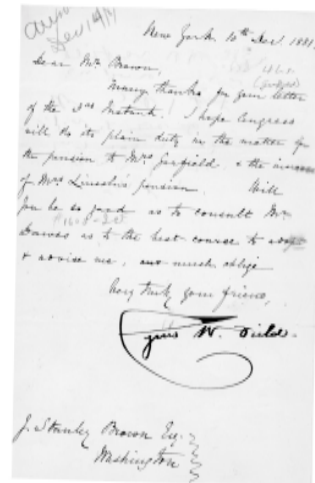 Ans
Dec 14/81
New York 10th Dec. 1881.
Dear Mr. Brown,
Many thanks for your letter
of the 3rd Instant. I hope Congress
will do its plain duty in the matter for
the pension to Mrs Garfield & the increase
of Mrs Lincoln's pension. Will
you be so good as to consult Mr
Dawes as to the best course to adopt
& advise me, and much oblige
Very truly your friend,
Cyrus W. Field.
J. Stanley Brown Esq.
Washington